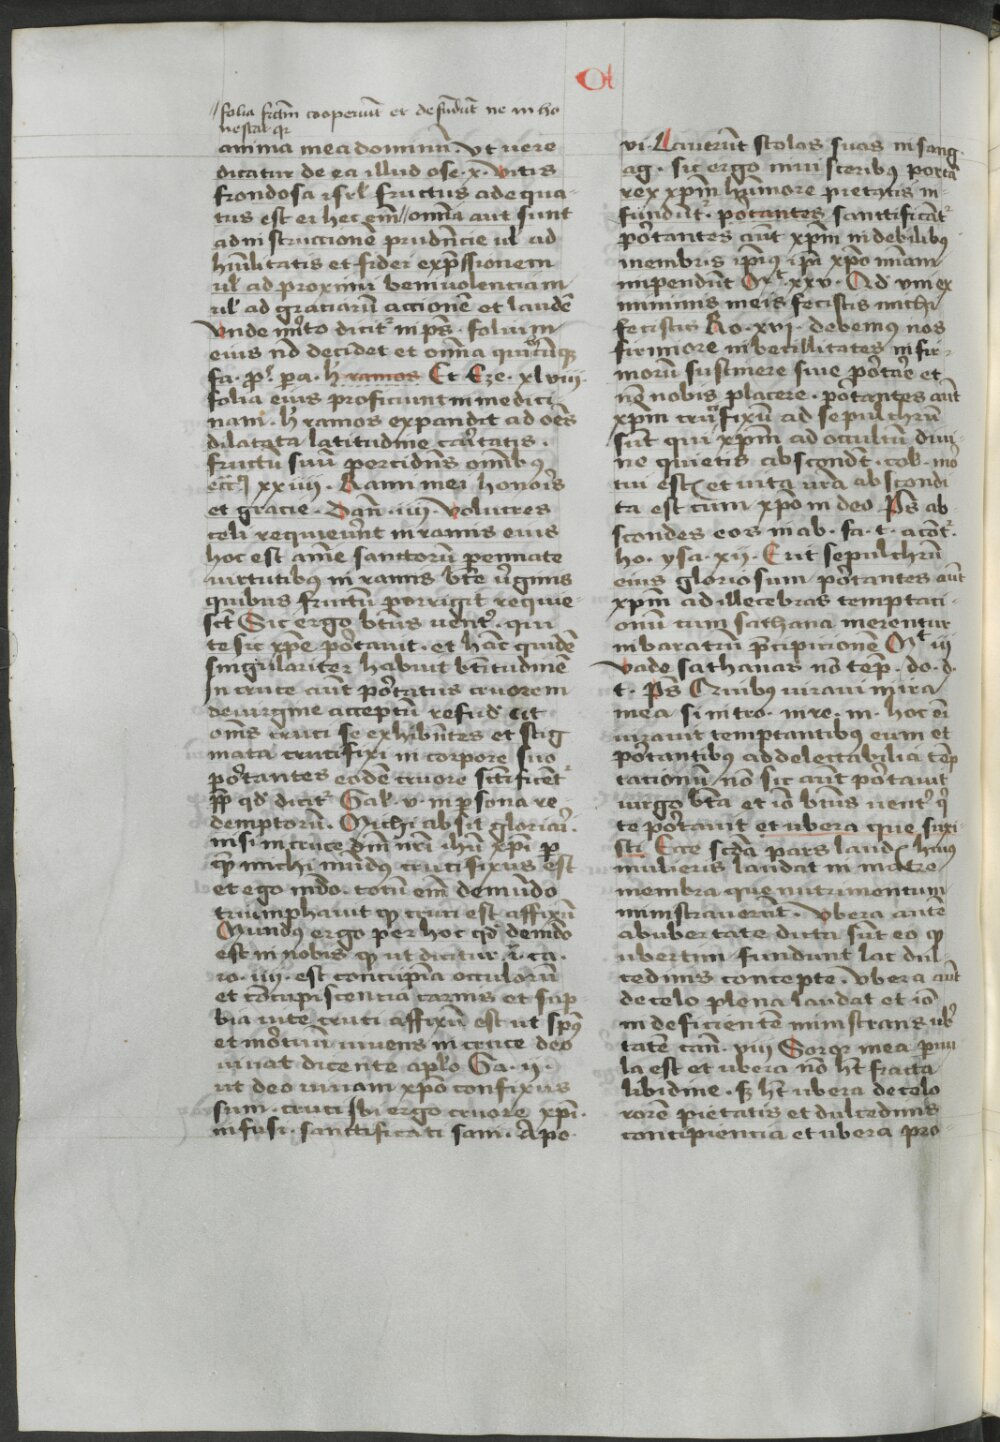 folia fructum cooperiunt et defendunt ne in ho
nestat qr
anima mea dominum. Ut vere
dicatur de ea illud ose. x. vitis
frondosa isrl fructus adequa-
tus est ei hec em̄ // om̄ia aut sunt
ad instruccionē prudn̄cie ul ad
humilitatis et fidei exp̄ssionem
ul ad proximi benivolenciam
ul ad graciarū accionē et laudē
Unde m̄ito dicit̄ in ps. folium
eius nō decidet et om̄ia qūcūq̄
fa. pro. pa. h̄ ramos Et Eze. xlviii.
folia eius proficiunt in medici
nam. h̄ ramos expandit ad oēs
dilatata latitudine caritatis.
fructū suū porridn̄s om̄ibꝰ
eccͥ xxiiii. Rami mei honoris
et gracie. Dan̄. iiii. volucres
celi requieverūt in ramis eius
hoc est anīe sanctorū pennate
virtutibꝰ in ramis btē vͥginis
quibus fructū porrigit requie-
scūt Sic ergo btūs vent̄. qui
te sic xpē portavit. et hāc quidē
singulariter habuit btītudinē
In cruce aūt portatus cruorem
de virgine acceptū refud̄ cit
om̄s cruci se exhibn̄tes et stig
mata crucifixi in corpore suo
portantes eodē cruore sctificēt̄
ꝓp̄ qd̄ dicit̄ Gal. v. in persona re
demptorū. Michi absit gloriari.
nisi in cruce dn̄i nrī ihū xpī p̄
q̄ michi mūdꝰ crucifixus est
et ego mūdo. totū em̄ de mūdo
triumphavit q̄ cruci est affixū
Mundꝰ ergo per hoc qd̄ de mūdo
est in nobis q̄ ut dicitur i. ca.
io. iiii. est concupīa occulorū
et cōcupiscencia carnis et sup
bia vite cruci affixū est ut spūs
et mortuū vivens in cruce deo
vivat dicente aplo Ga. ii.
ut deo vivam xpō confixus
sum. cruci ibi ergo cruore xpī.
infusi. sanctificati sani. Apo.
vi. Laverūt stolas suas in sang.
ag. sic ergo ministeribꝰ porta
rex xpm̄ humore pietatis in-
fundunt̄. portantes sanctificāt̄
portantes aūt xpm̄ in debilibꝰ
membris ipsius ipī xpō mīam
impendūt Mt. xxv. Qd̄ uni ex
minimis meis fecistis michi
fecistis Ro. xvi. debemꝰ nos
firmiore inbecillitates infir-
morū sustinere sive portare et
nō nobis placere. portantes aūt
xpm̄ crucifixū ad sepulchrū
sūt qui xpm̄ ad occultū divi-
ne quietis abscondūt. col. mō
tui est et vita vrā abscondi
ta est cum xpō in deo Ps ab-
scondes eos in ab. fa. t. a cōt̄.
ho. ysa. xii. Erit sepulchrū
eius gloriosum portantes aūt
xpm̄ ad illecebras temptaci-
onū cum sathana merentur
in baratrū p̄cipicionē Mt iii
Vade sathanas nō tēp. do. d.
t. Ps Quibꝰ iuravi in ira
mea si intro. in re. m. hoc ē
iuravit temptantibus eum et
portantibus ad delectabilia tēp
tacionū / nō sic aūt portavit
virgo btā et iō btūs vent̄ q̄
te portavit et ubera que suxi
sti Ecce scdā pars laudꝭ huius
mulieris laudat in matre
membra que nutrimentum
ministraverūt. Ubera autē
ab ubertate dicta sūt eo q̄
ubertim fundunt lac dul
cedinis concepte. ubera aūt
de celo plena laudat et iō
indeficientē ministrans ub̄
tatē can̄. viii Soror mea parvu
la est et ubera nō ht̄ fracta
libidine. sꝫ ht̄ ubera de celo
rorē pietatis et dulcedinis
concipiencia et ubera pro-